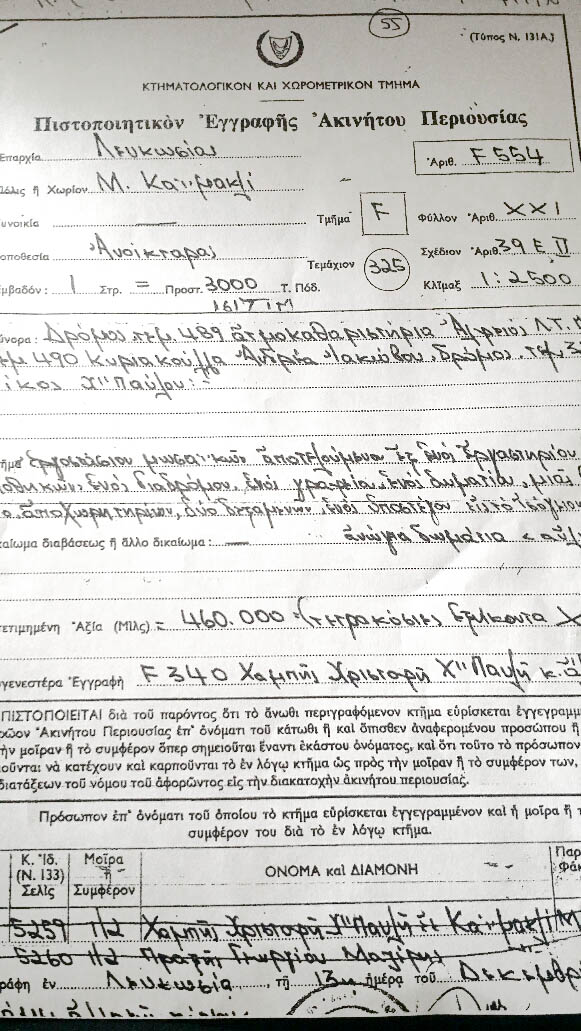 55
(Τύπος Ν. 131Α.)
ΚΤΗΜΑΤΟΛΟΓΙΚΟΝ ΚΑΙ ΧΩΡΟΜΕΤΡΙΚΟΝ ΤΜΗΜΑ
Πιστοποιητικὸν Ἐγγραφῆς Ἀκινήτου Περιουσίας
Ἐπαρχία Λευκωσίας
Ἀριθ. F 554
Πόλις ἢ Χωρίον Μ. Καϊμακλί
υνοικία
Τμῆμα F
Φύλλον Ἀριθ. XXI
οποθεσία
Τεμάχιον 325
Σχέδιον Ἀριθ. 39 E II
μβαδόν: 1 Στρ. = Προστ. 3000 τ. Πόδ.
Κλῖμαξ 1:2500
ύνορα: Δρόμος τεμ. 489
τεμ 490 Κυριακούλλα Ἀνδρέα Ἰακώβου, δρόμος, τεμ. 3
Χ"Παύλου:
ῆμα ἐργοστάσιον μωσαϊκῶν ἀποτελούμενον ἐξ ἑνὸς ἐργαστηρίου
ἑνὸς διαδρόμου, ἑνὸς γραφείου, ἑνὸς δωματίου, μιᾶς
ἀποχωρητηρίων, δύο δεξαμενῶν, ἑνὸς ὑποστέγου εἰς τὸ ἰσόγειον
καίωμα διαβάσεως ἢ ἄλλο δικαίωμα:
ἀνώγια δωμάτια
τετιμημένη Ἀξία (Μὶλς) = 460.000 =
γενεστέρα Ἐγγραφὴ F 340 Χαμπῆς Χριστοφῆ Χ"Παυλῆ κ.ἄ
ΠΙΣΤΟΠΟΙΕΙΤΑΙ διὰ τοῦ παρόντος ὅτι τὸ ἄνωθι περιγραφόμενον κτῆμα εὑρίσκεται ἐγγεγραμμ
ρῶον Ἀκινήτου Περιουσίας ἐπ' ὀνόματι τοῦ κάτωθι ἢ καὶ ὄπισθεν ἀναφερομένου προσώπου ἢ
ὴν μοῖραν ἢ τὸ συμφέρον ὅπερ σημειοῦται ἔναντι ἑκάστου ὀνόματος, καὶ ὅτι τοῦτο τὸ πρόσωπον
οῦνται νὰ κατέχουν καὶ καρποῦνται τὸ ἐν λόγῳ κτῆμα ὡς πρὸς τὴν μοῖραν ἢ τὸ συμφέρον των,
διατάξεων τοῦ νόμου τοῦ ἀφορῶντος εἰς τὴν διακατοχὴν ἀκινήτου περιουσίας.
Πρόσωπον ἐπ' ὀνόματι τοῦ ὁποίου τὸ κτῆμα εὑρίσκεται ἐγγεγραμμένον καὶ ἡ μοῖρα ἢ τ
συμφέρον του διὰ τὸ ἐν λόγῳ κτῆμα.
Κ. Ἰδ. (Ν. 133) Σελὶς
Μοῖρα ἢ Συμφέρον
ΟΝΟΜΑ καὶ ΔΙΑΜΟΝΗ
Παρ
Φάκ
5259 1/2 Χαμπῆς Χριστοφῆ Χ"Παυλῆ ἐκ Καϊμακλὶ Μ
5260 1/2 Γεωργίου
γράφη ἐν Λευκωσίᾳ τῇ 13η ἡμέρᾳ τοῦ Δεκεμβρί